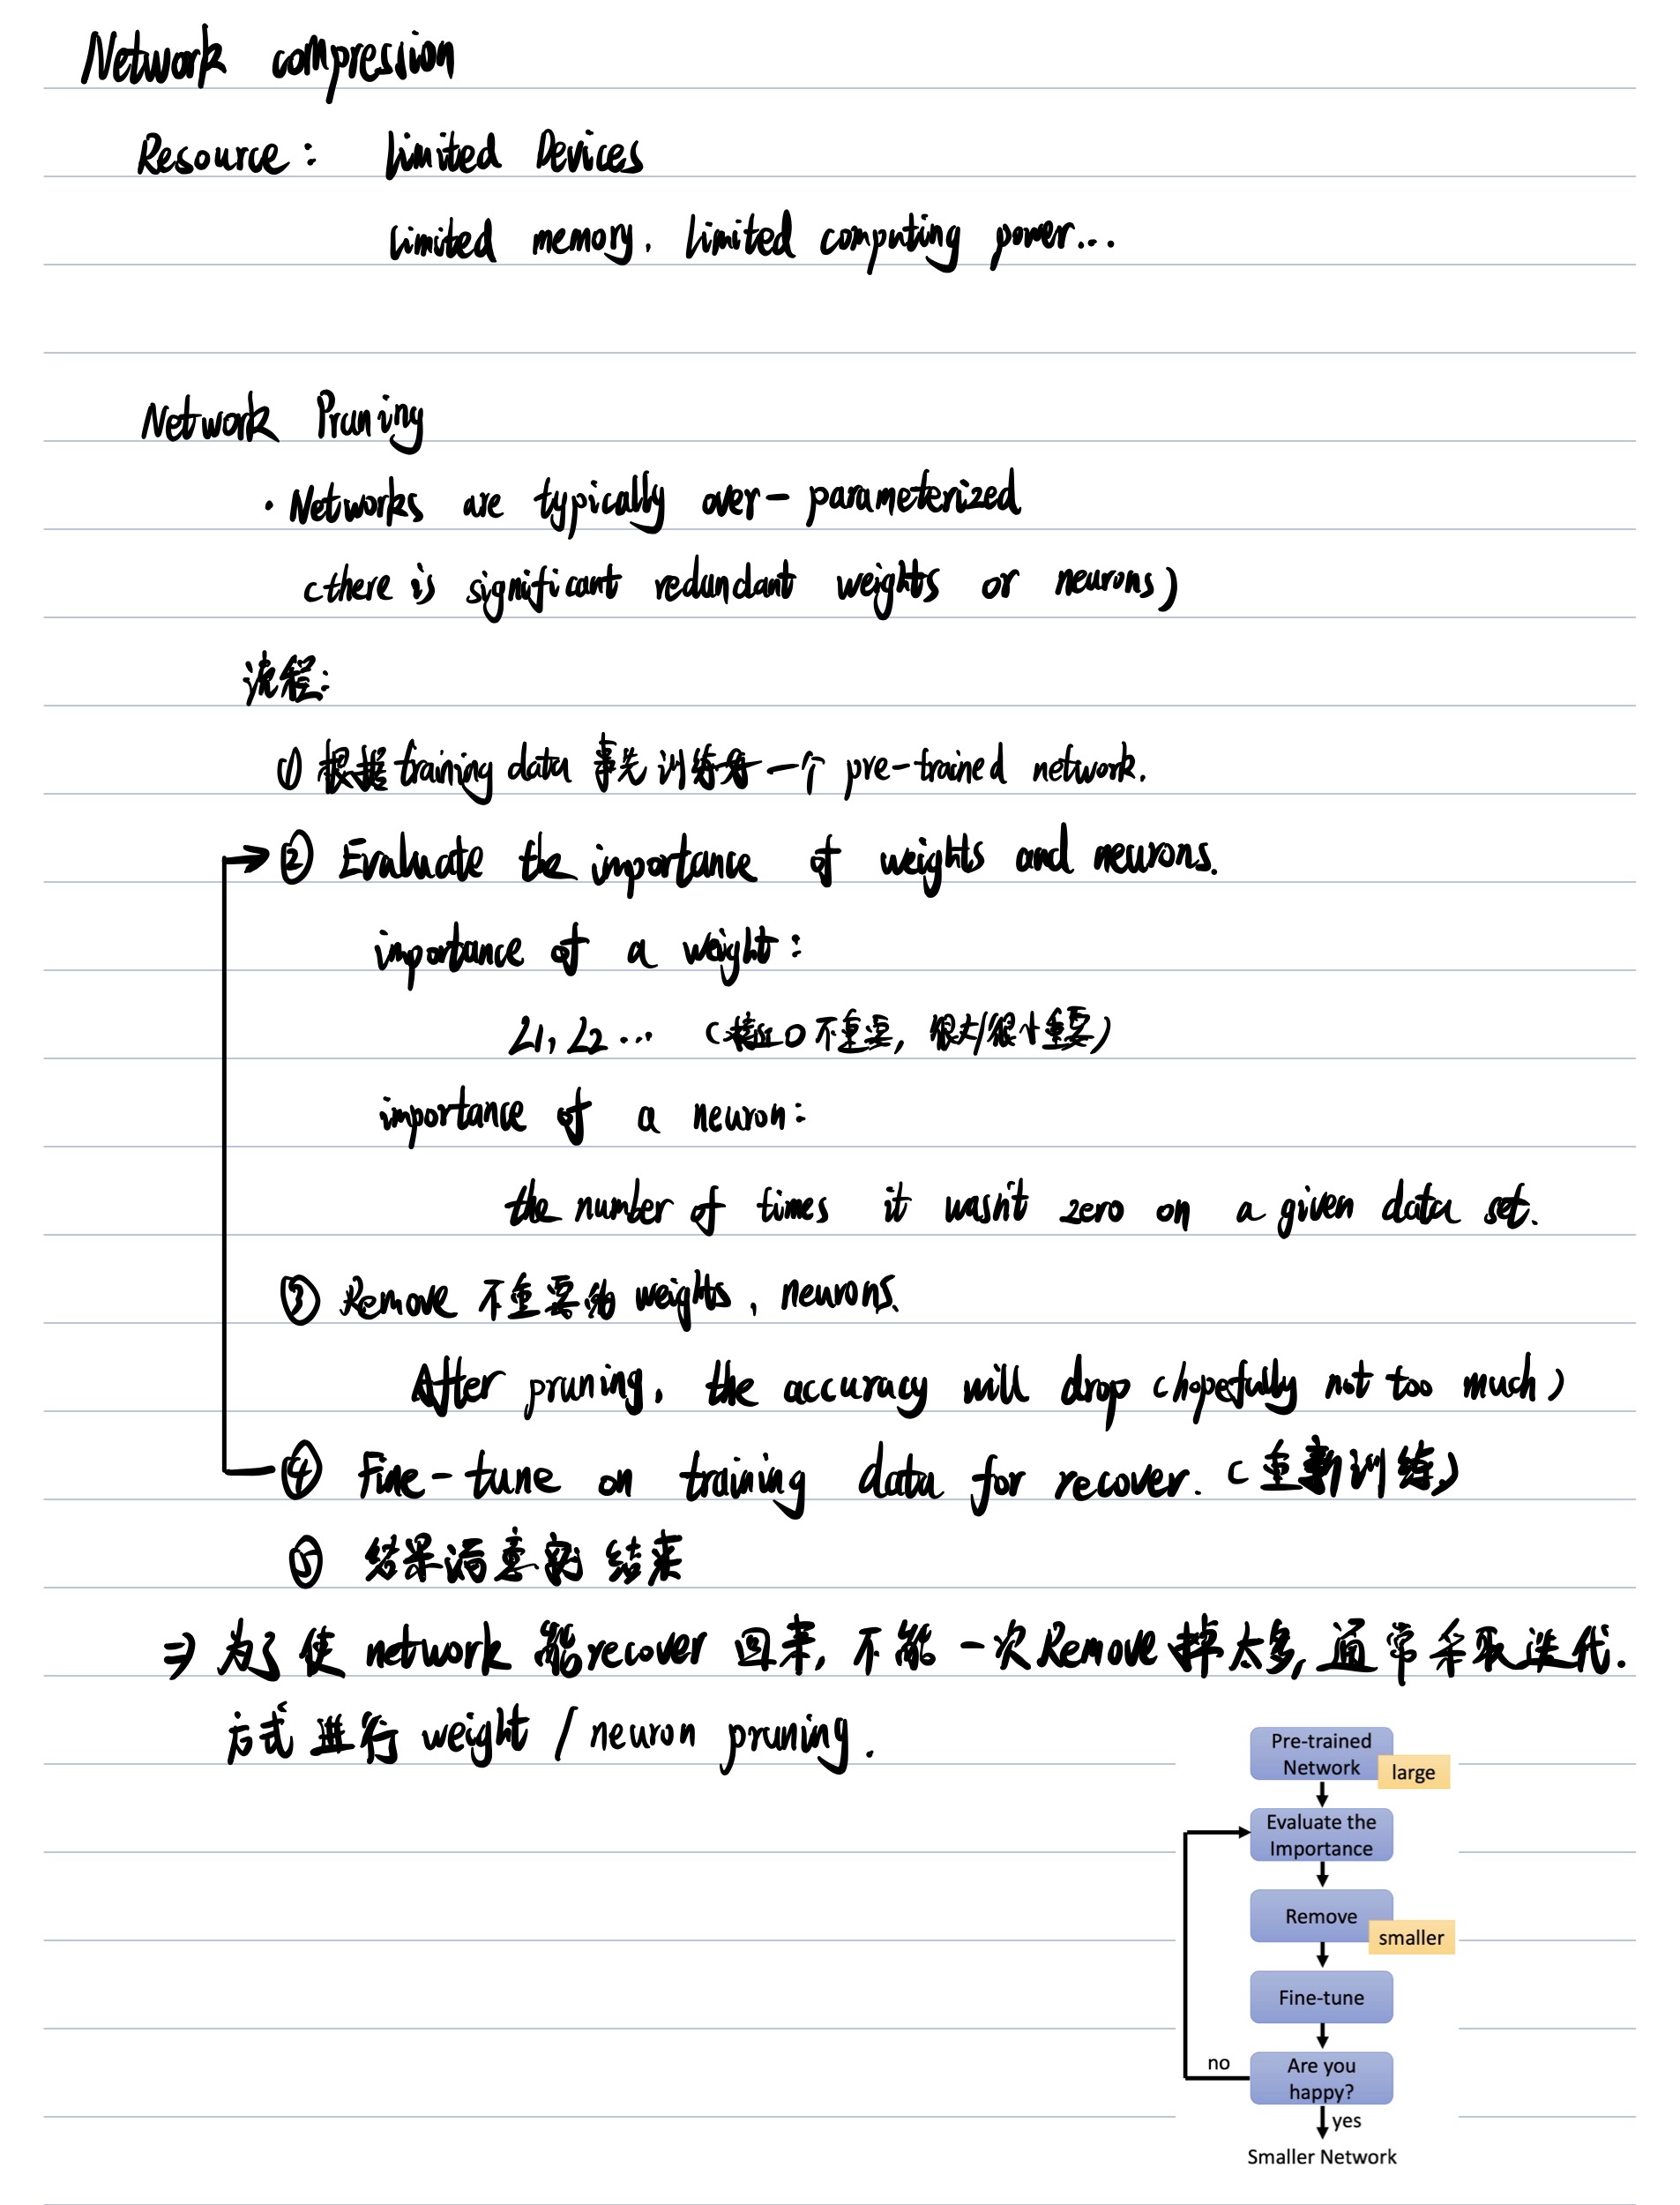 Network compression
Resource: Limited Devices
Limited memory, Limited computing power...
Network Pruning
· Networks are typically over-parameterized
(there is significant redundant weights or neurons)
流程:
① 根据 training data 事先训练好一个 pre-trained network.
② Evaluate the importance of weights and neurons.
importance of a weight:
L1, L2 ... (接近0不重要, 很大/很小重要)
importance of a neuron:
the number of times it wasn't zero on a given data set.
③ Remove 不重要的 weights, neurons.
After pruning, the accuracy will drop (hopefully not too much)
④ Fine-tune on training data for recover. (重新训练)
⑤ 结果满意则结束
⇒ 为了使 network 能 recover 回来, 不能一次 Remove 掉太多, 通常采取迭代.
方式进行 weight / neuron pruning.
Pre-trained
Network
large
Evaluate the
Importance
Remove
smaller
Fine-tune
no
Are you
happy?
yes
Smaller Network